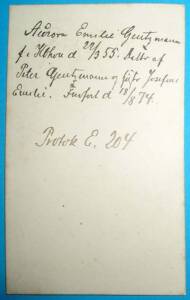 Aurora Emilie Gentzmann
f. i Kbhvn d 22/3 55. Datter af
Peter Gentzmann og Josefine
Emilie. d 18/8 74.
Protok E. 204